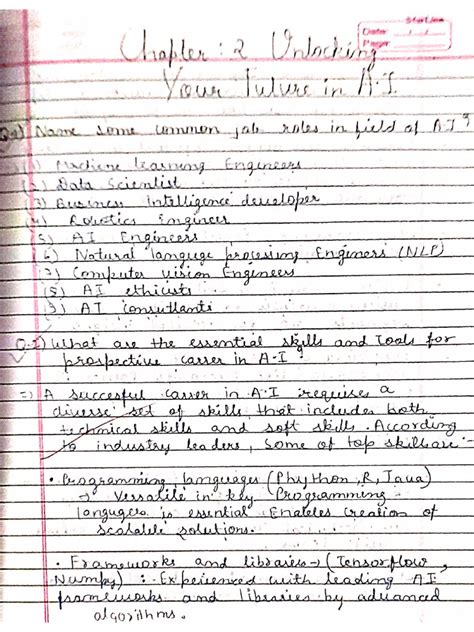 StarLine
Date:
Page:
Chapter : 2 Unlocking
Your Future in A.I.
Name some common job roles in field of A.I ?
(1) Machine learning Engineers
(2) Data Scientist
(3) Business Intelligence developer
(4) Robotics Engineer
5) AI Engineers
6) Natural language processing Enginers (NLP)
7) Computer vision Engineers
(8) AI ethicists
9) AI consultants
Q.2) What are the essential skills and Tools for
prospective carrer in A-I ?
=) A succesful career in A.I requires a
diverse set of skills, that includes both
technical skills and soft skills. According
to industry leaders, some of top skills are :-
• Programming languages (Phython, R, Java)
→ Versatile in key Programming
languages is essential Enables creation of
scalable solutions.
• Frameworks and libraries → (Tensorflow,
Numpy) : - Experienced with leading AI
frameworks and libraries by advanced
algorithms.